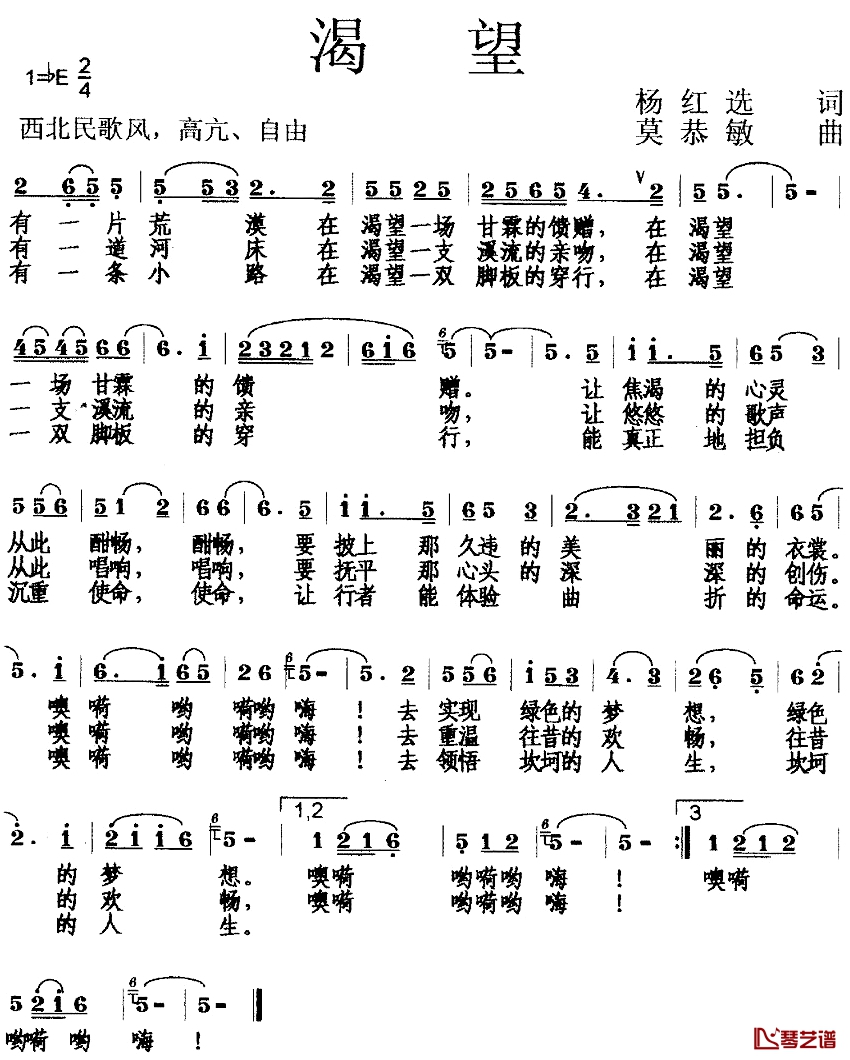 渴 望
1=♭E 2/4
杨 红 选 词
西北民歌风，高亢、自由
莫 恭 敏 曲
2 6 5 5 | 5 5 3 2. 2 | 5 5 2 5 | 2 5 6 5 4. 2 | 5 5. | 5 -
有 一 片 荒 漠 在 渴望一场 甘霖的馈赠，在 渴望
有 一 道 河 床 在 渴望一支 溪流的亲吻，在 渴望
有 一 条 小 路 在 渴望一双 脚板的穿行，在 渴望
4 5 4 5 6 6 | 6. 1 | 2 3 2 1 2 | 6 1 6 | 6 5 | 5 - | 5. 5 | 1 1. 5 | 6 5 3
一 场 甘霖 的 馈 赠。 让 焦渴 的 心灵
一 支 溪流 的 亲 吻， 让 悠悠 的 歌声
一 双 脚板 的 穿 行， 能 真正 地 担负
5 5 6 | 5 1 2 | 6 6 | 6. 5 | 1 1. 5 | 6 5 3 | 2. 3 2 1 | 2. 6 | 6 5
从此 酣畅， 酣畅， 要 披上 那 久违 的 美 丽 的 衣裳。
从此 唱响， 唱响， 要 抚平 那 心头 的 深 深 的 创伤。
沉重 使命， 使命， 让 行者 能 体验 曲 折 的 命运。
5. 1 | 6. 1 6 5 | 2 6 | 6 5 - | 5. 2 | 5 5 6 | 1 5 3 | 4. 3 | 2 6 5 | 6 2
噢 嗬 哟 嗬哟 嗨 ！ 去 实现 绿色的 梦 想， 绿色
噢 嗬 哟 嗬哟 嗨 ！ 去 重温 往昔的 欢 畅， 往昔
噢 嗬 哟 嗬哟 嗨 ！ 去 领悟 坎坷的 人 生， 坎坷
1,2 3
2. 1 | 2 1 1 6 | 6 5 - | 1 2 1 6 | 5 1 2 | 6 5 - | 5 - :| 1 2 1 2
的 梦 想。 噢嗬 哟嗬哟 嗨 ！ 噢嗬
的 欢 畅， 噢嗬 哟嗬哟 嗨 ！
的 人 生。
5 2 1 6 | 6 5 - | 5 - ‖
哟嗬 哟 嗨 ！
琴艺谱